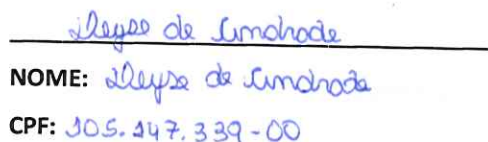 Deyse de Andrade
NOME: Deyse de Andrade
CPF: 105.147.339-00